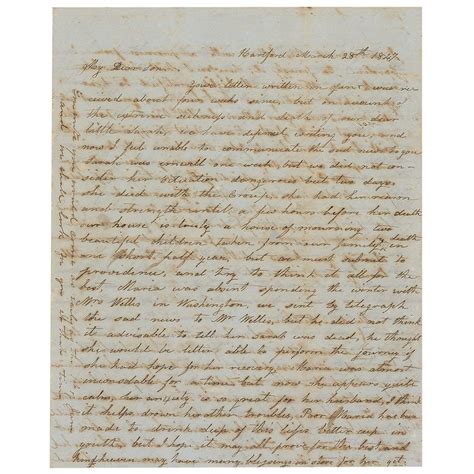 Hartford March 28th 1847
My Dear
Your letter written in part was re-
ceived about four weeks since, but on account of
the extreme sickness and death of our dear
little Sarah, we have defered writing you, and
now I feel unable to communicate the sad news to you
Sarah was unwell one week but we did not con-
sider her situation dangerous but two days
she died with the Croup, she had her reason
and strength until a few hours before her death
our house is truly a house of mourning two
beautiful children taken from our family by death
in one short half year, but we must submit to
providence, and try to think it all for the
best, Maria was about spending the winter with
Mrs Willis in Washington, we sent by telegraph
the sad news to Mr Willis, but he did not think
it advisable to tell her Sarah was dead, he thought
she would be better able to perform the journey if
she had hope for her recovery. Maria was almost
inconsolable for a time but now she appears quite
calm, her anxiety is so great for her husband, I think
it helps drown her other troubles, Poor Maria has been
made to drink deep of this lifes bitter cup in
youth, but I hope it may all prove for the best, and
kind heaven may have many blessings in store for her yet